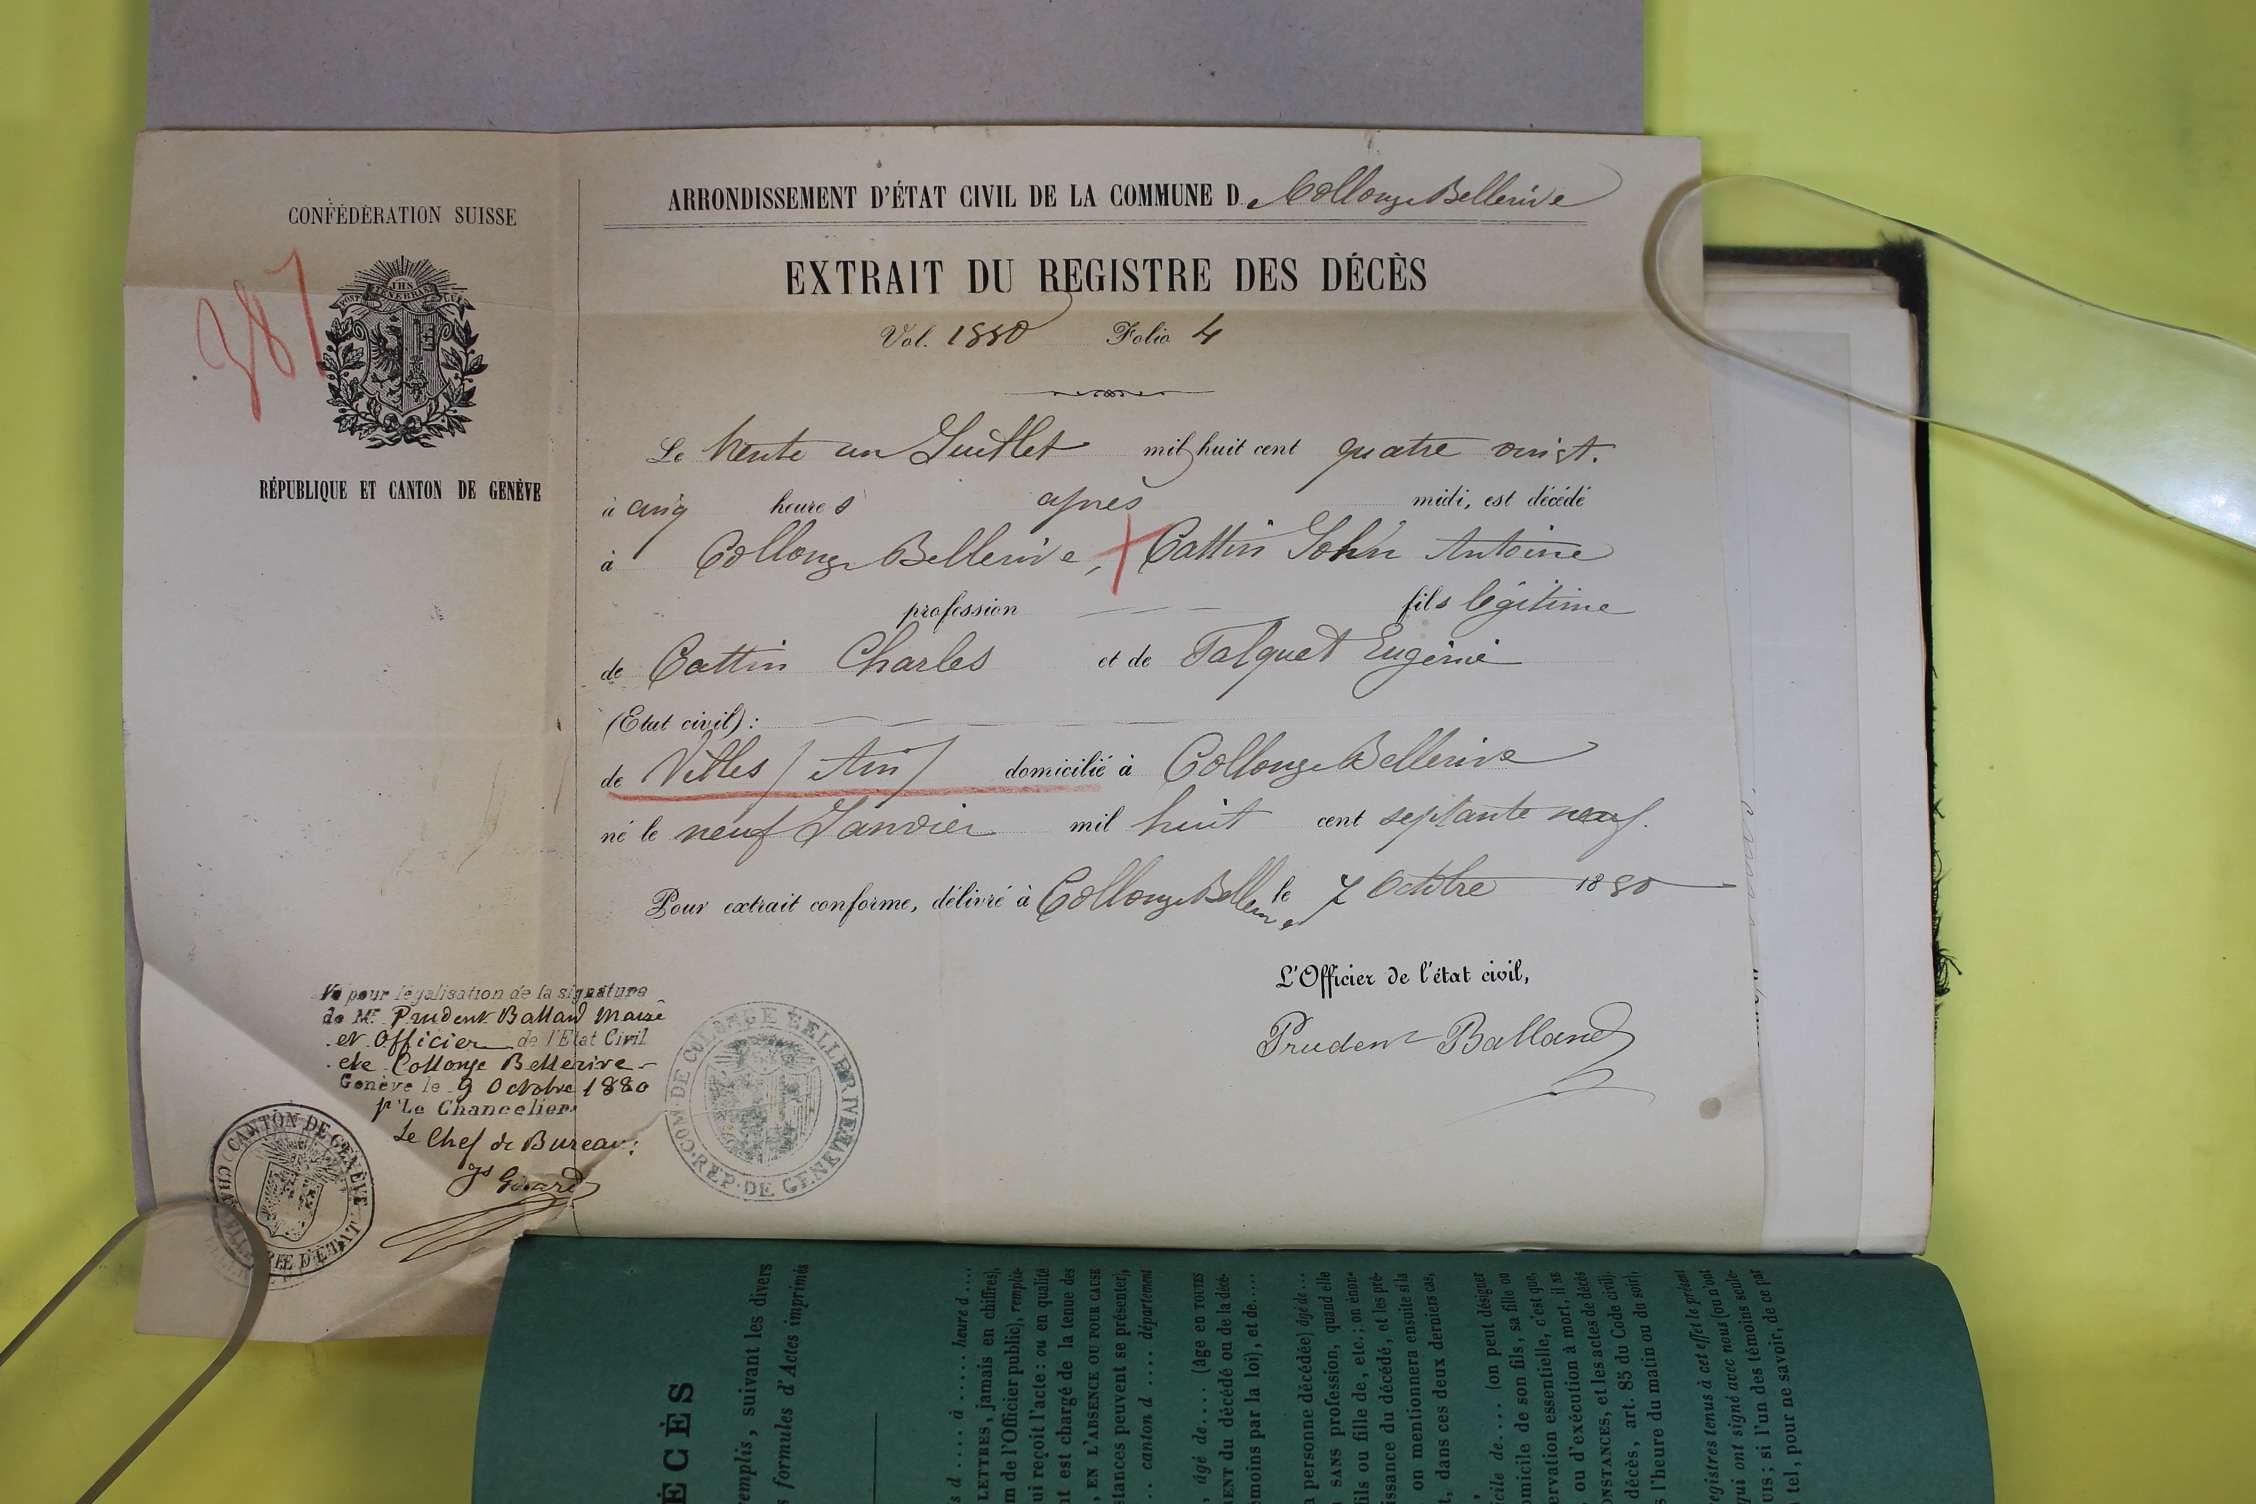 CONFÉDÉRATION SUISSE
387
POST TENEBRAS LUX
JHS
RÉPUBLIQUE ET CANTON DE GENÈVE
ARRONDISSEMENT D'ÉTAT CIVIL DE LA COMMUNE De Collonge Bellerive
EXTRAIT DU REGISTRE DES DÉCÈS
Vol. 1880 Folio 4
Le trente un Juillet mil huit cent quatre vingt.
à cinq heures après midi, est décédé
à Collonge Bellerive, Cattin John Antoine
profession fils légitime
de Cattin Charles et de Falquet Eugénie
(Etat civil) :
de Villes (Ain) domicilié à Collonge Bellerive
né le neuf Janvier mil huit cent septante neuf.
Pour extrait conforme, délivré à Collonge Bellerive le 7 Octobre 1880
L'Officier de l'état civil,
Prudent Balland
Vu pour légalisation de la signature
de Mr. Prudent Balland Maire
et Officier de l'Etat Civil
de Collonge Bellerive
Genève le 9 Octobre 1880
pr Le Chancelier
Le Chef de Bureau:
CANTON DE GENÈVE
CHANCELLERIE D'ÉTAT
COM. DE COLLONGE BELLERIVE
REP. DE GENEVE
DÉCÈS
remplis, suivant les divers
formules d'Actes imprimés
s d ..... à ..... heure d ....
LETTRES, jamais en chiffres),
m de l'Officier public), remplis-
ui reçoit l'acte : ou en qualité
nt est chargé de la tenue des
, EN L'ABSENCE OU POUR CAUSE
stances peuvent se présenter),
.. canton d .... département
, âgé de.... (âge en TOUTES
MENT du décédé ou de la décé-
témoins par la loi), et de......
a personne décédée) âgé de ...
SANS profession, quand elle
fils ou fille de, etc.; on énon-
issance du décédé, et les pré-
on mentionnera ensuite si la
t, dans ces deux derniers cas,
cile de.... (on peut désigner
omicile de son fils, sa fille ou
ervation essentielle, c'est que,
ou d'exécution à mort, il NE
CONSTANCES, et les actes de décès
décès, art. 85 du Code civil).
l'heure du matin ou du soir),
registres tenus à cet effet le présent
qui ont signé avec nous (ou n'ont
; si l'un des témoins seule-
tel, pour ne savoir, de ce par